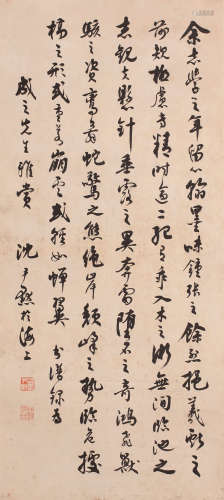 余志學之年留心翰墨味鍾張之餘烈挹羲獻之
前規極慮專精時逾二紀有乖入木之術無間臨池之
志觀夫懸針垂露之異奔雷墜石之奇鴻飛獸
駭之資鸞舞蛇驚之態絕岸頹峰之勢臨危據
槁之形或重若崩雲或輕如蟬翼 書譜錄為
威之先生雅賞 沈尹默於海上